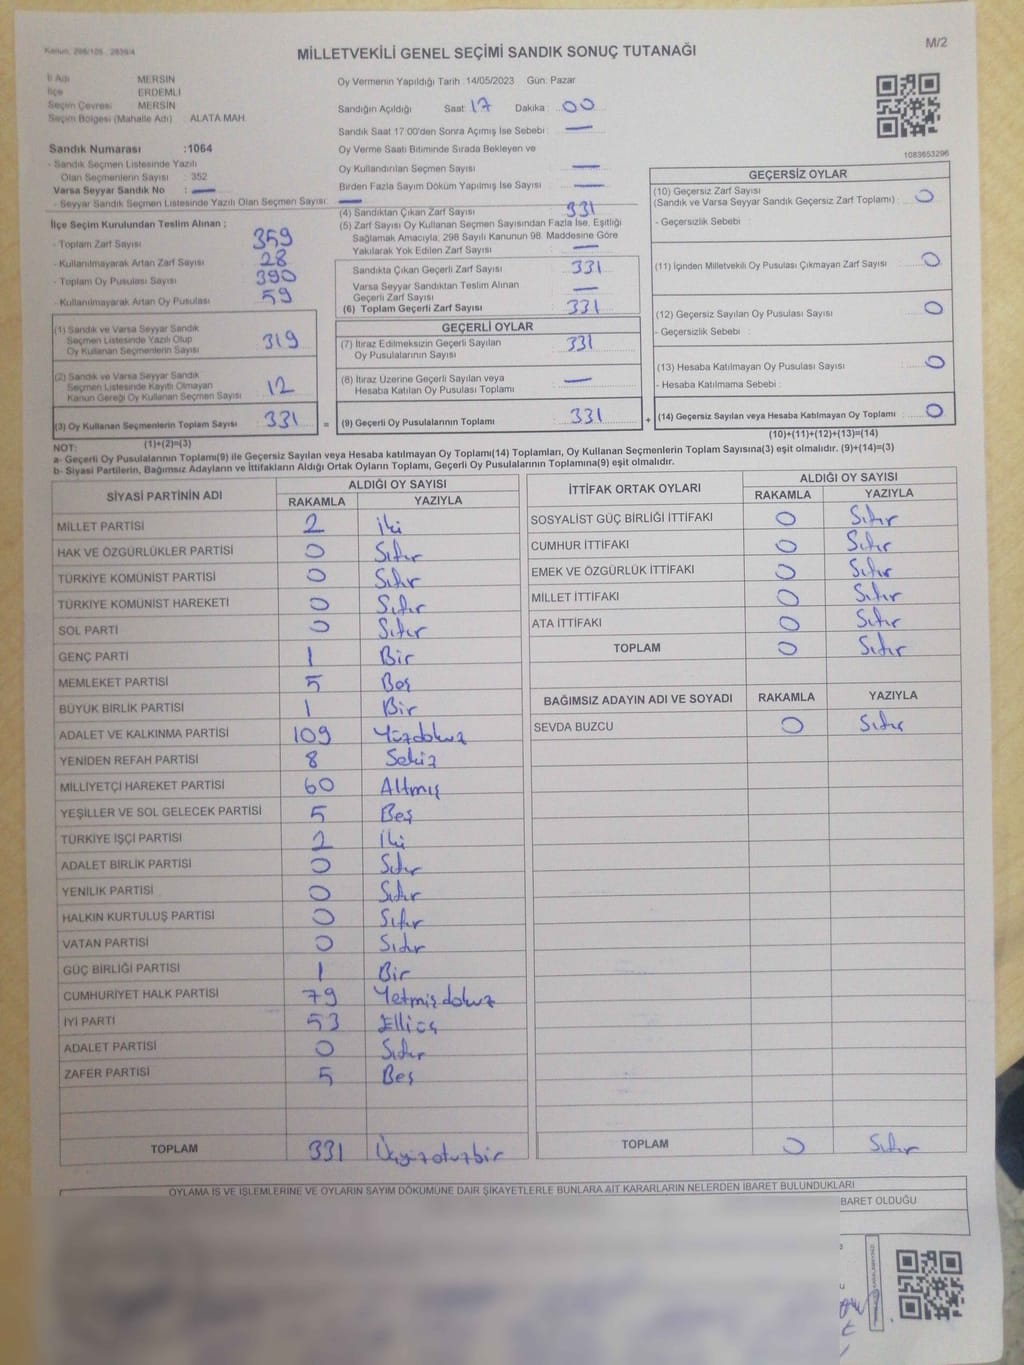 Kanun: 298/105 2839/4
MİLLETVEKİLİ GENEL SEÇİMİ SANDIK SONUÇ TUTANAĞI
M/2
İl Adı MERSİN
İlçe ERDEMLİ
Seçim Çevresi MERSİN
Seçim Bölgesi (Mahalle Adı) : ALATA MAH.
Oy Vermenin Yapıldığı Tarih :14/05/2023 Gün: Pazar
Sandığın Açıldığı Saat: 17 Dakika : 00
Sandık Saat 17:00'den Sonra Açımış İse Sebebi : —
Oy Verme Saati Bitiminde Sırada Bekleyen ve
Oy Kullandırılan Seçmen Sayısı —
Birden Fazla Sayım Döküm Yapılmış İse Sayısı —
1083653296
Sandık Numarası :1064
- Sandık Seçmen Listesinde Yazılı
Olan Seçmenlerin Sayısı : 352
Varsa Seyyar Sandık No : —
- Seyyar Sandık Seçmen Listesinde Yazılı Olan Seçmen Sayısı: —
İlçe Seçim Kurulundan Teslim Alınan ;
- Toplam Zarf Sayısı 359
- Kullanılmayarak Artan Zarf Sayısı 28
- Toplam Oy Pusulası Sayısı 390
- Kullanılmayarak Artan Oy Pusulası 59
(1) Sandık ve Varsa Seyyar Sandık
Seçmen Listesinde Yazılı Olup
Oy Kullanan Seçmenlerin Sayısı 319
(2) Sandık ve Varsa Seyyar Sandık
Seçmen Listesinde Kayıtlı Olmayan
Kanun Gereği Oy Kullanan Seçmen Sayısı 12
(3) Oy Kullanan Seçmenlerin Toplam Sayısı 331
(1)+(2)=(3)
(4) Sandıktan Çıkan Zarf Sayısı 331
(5) Zarf Sayısı Oy Kullanan Seçmen Sayısından Fazla İse, Eşitliği
Sağlamak Amacıyla, 298 Sayılı Kanunun 98. Maddesine Göre
Yakılarak Yok Edilen Zarf Sayısı —
Sandıkta Çıkan Geçerli Zarf Sayısı 331
Varsa Seyyar Sandıktan Teslim Alınan
Geçerli Zarf Sayısı —
(6) Toplam Geçerli Zarf Sayısı 331
GEÇERLİ OYLAR
(7) İtiraz Edilmeksizin Geçerli Sayılan
Oy Pusulalarının Sayısı 331
(8) İtiraz Üzerine Geçerli Sayılan veya
Hesaba Katılan Oy Pusulası Toplamı —
= (9) Geçerli Oy Pusulalarının Toplamı 331 +
GEÇERSİZ OYLAR
(10) Geçersiz Zarf Sayısı
(Sandık ve Varsa Seyyar Sandık Geçersiz Zarf Toplamı) : 0
- Geçersizlik Sebebi :
(11) İçinden Milletvekili Oy Pusulası Çıkmayan Zarf Sayısı 0
(12) Geçersiz Sayılan Oy Pusulası Sayısı 0
- Geçersizlik Sebebi :
(13) Hesaba Katılmayan Oy Pusulası Sayısı 0
- Hesaba Katılmama Sebebi :
(14) Geçersiz Sayılan veya Hesaba Katılmayan Oy Toplamı 0
(10)+(11)+(12)+(13)=(14)
NOT:
a- Geçerli Oy Pusulalarının Toplamı(9) ile Geçersiz Sayılan veya Hesaba katılmayan Oy Toplamı(14) Toplamları, Oy Kullanan Seçmenlerin Toplam Sayısına(3) eşit olmalıdır. (9)+(14)=(3)
b- Siyasi Partilerin, Bağımsız Adayların ve İttifakların Aldığı Ortak Oyların Toplamı, Geçerli Oy Pusulalarının Toplamına(9) eşit olmalıdır.
SİYASİ PARTİNİN ADI ALDIĞI OY SAYISI
RAKAMLA YAZIYLA
MİLLET PARTİSİ 2 İki
HAK VE ÖZGÜRLÜKLER PARTİSİ 0 Sıfır
TÜRKİYE KOMÜNİST PARTİSİ 0 Sıfır
TÜRKİYE KOMÜNİST HAREKETİ 0 Sıfır
SOL PARTİ 0 Sıfır
GENÇ PARTİ 1 Bir
MEMLEKET PARTİSİ 5 Beş
BÜYÜK BİRLİK PARTİSİ 1 Bir
ADALET VE KALKINMA PARTİSİ 109 Yüzdokuz
YENİDEN REFAH PARTİSİ 8 Sekiz
MİLLİYETÇİ HAREKET PARTİSİ 60 Altmış
YEŞİLLER VE SOL GELECEK PARTİSİ 5 Beş
TÜRKİYE İŞÇİ PARTİSİ 2 İki
ADALET BİRLİK PARTİSİ 0 Sıfır
YENİLİK PARTİSİ 0 Sıfır
HALKIN KURTULUŞ PARTİSİ 0 Sıfır
VATAN PARTİSİ 0 Sıfır
GÜÇ BİRLİĞİ PARTİSİ 1 Bir
CUMHURİYET HALK PARTİSİ 79 Yetmişdokuz
İYİ PARTİ 53 Elliüç
ADALET PARTİSİ 0 Sıfır
ZAFER PARTİSİ 5 Beş
TOPLAM 331 Üçyüzotuzbir
İTTİFAK ORTAK OYLARI ALDIĞI OY SAYISI
RAKAMLA YAZIYLA
SOSYALİST GÜÇ BİRLİĞİ İTTİFAKI 0 Sıfır
CUMHUR İTTİFAKI 0 Sıfır
EMEK VE ÖZGÜRLÜK İTTİFAKI 0 Sıfır
MİLLET İTTİFAKI 0 Sıfır
ATA İTTİFAKI 0 Sıfır
TOPLAM 0 Sıfır
BAĞIMSIZ ADAYIN ADI VE SOYADI RAKAMLA YAZIYLA
SEVDA BUZCU 0 Sıfır
TOPLAM 0 Sıfır
OYLAMA İŞ VE İŞLEMLERİNE VE OYLARIN SAYIM DÖKÜMÜNE DAİR ŞİKAYETLERLE BUNLARA AİT KARARLARIN NELERDEN İBARET BULUNDUKLARI
BARET OLDUĞU